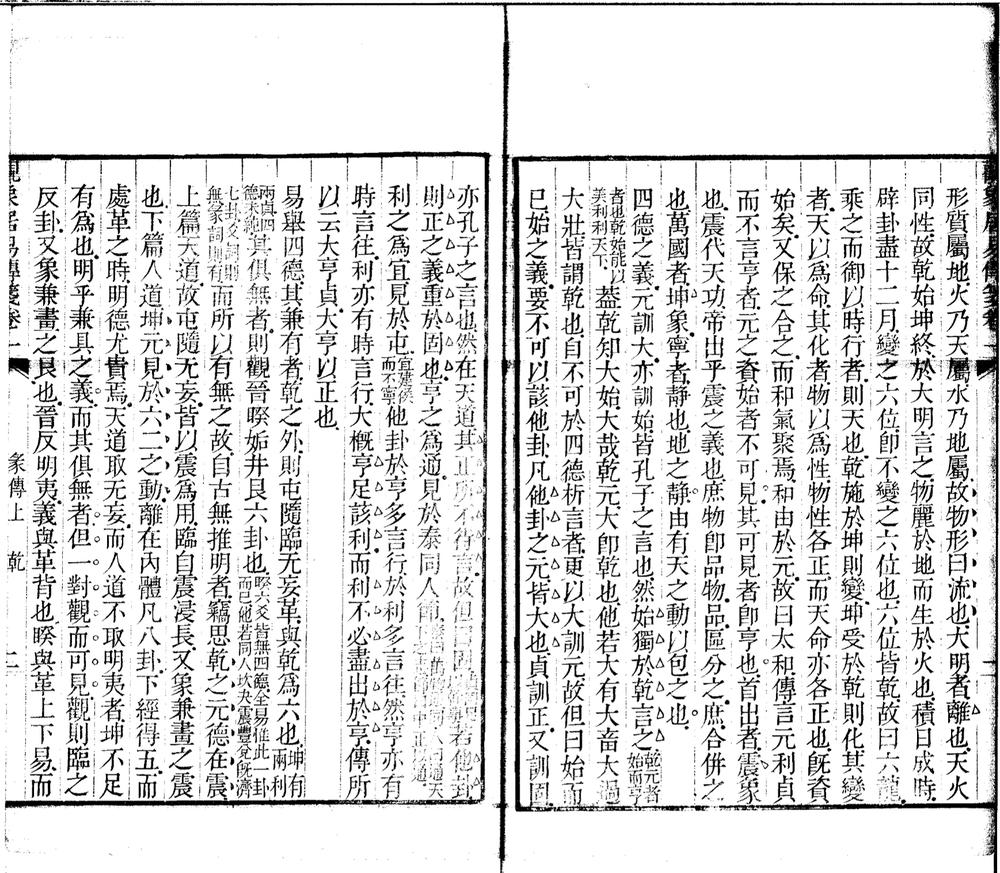 形質屬地火乃天屬水乃地屬故物形曰流也大明者離也天火
同性故乾始坤終於大明言之物麗於地而生於火也積日成時
辟卦盡十二月變之六位卽不變之六位也六位皆乾故曰六龍
乘之而御以時行者則天也乾施於坤則變坤受於乾則化其變
者天以爲命其化者物以爲性物性各正而天命亦各正也旣資
始矣又保之合之而和氣聚焉和由於元故曰太和傳言元利貞
而不言亨者元之資始者不可見其可見者卽亨也首出者震象
也震代天功帝出乎震之義也庶物卽品物品區分之庶合併之
也萬國者坤象寧者靜也地之靜由有天之動以包之也
四德之義元訓大亦訓始皆孔子之言也然始獨於乾言之乾元者始而亨
者也乾始能以美利利天下蓋乾知大始大哉乾元大卽乾也他若大有大畜大過
大壯皆謂乾也自不可於四德析言者更以大訓元故但曰始而
已始之義要不可以該他卦凡他卦之元皆大也貞訓正又訓固
亦孔子之言也然在天道其正所不待言故但言固若他卦
則正之義重於固也亨之爲通見於泰同人節
利之爲宜見於屯宜建侯而不寧他卦於亨多言行於利多言往然亨亦有
時言往利亦有時言行大槪亨足該利而利不必盡出於亨傳所
以云大亨貞大亨以正也
易舉四德其兼有者乾之外則屯隨臨无妄革與乾爲六也坤有兩利
兩貞四德未純其俱無者則觀晉睽姤井艮六卦也睽六爻皆無四德全易惟此一卦而已他若同人坎夬震豐兌旣濟
七卦爻詞則無彖詞則有而所以有無之故自古無推明者竊思乾之元德在震
上篇天道故屯隨无妄皆以震爲用臨自震浸長又象兼畫之震
也下篇人道坤元見於六二之動離在內體凡八卦下經得五而
處革之時明德尤貴焉天道取无妄而人道不取明夷者坤不足
有爲也明乎兼具之義而其俱無者但一對觀而可見觀則臨之
反卦又象兼畫之艮也晉反明夷義與革背也睽與革上下易而
彖傳上 乾
二